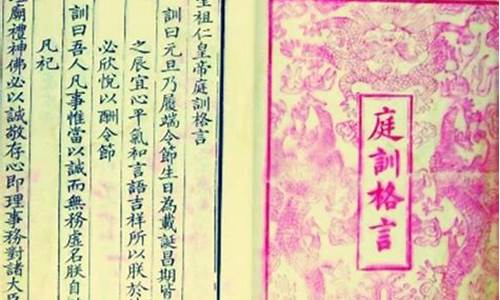 庭訓格言
祖仁皇帝庭訓格言
訓曰元旦乃履端令節生日為載誕昌期皆
之辰宜心平氣和言語吉祥所以朕於
必欣悅以酬令節
訓曰吾人凡事惟當以誠而無務虛名朕自
凡祀
廟禮神佛必以誠敬存心即理事務對諸大臣